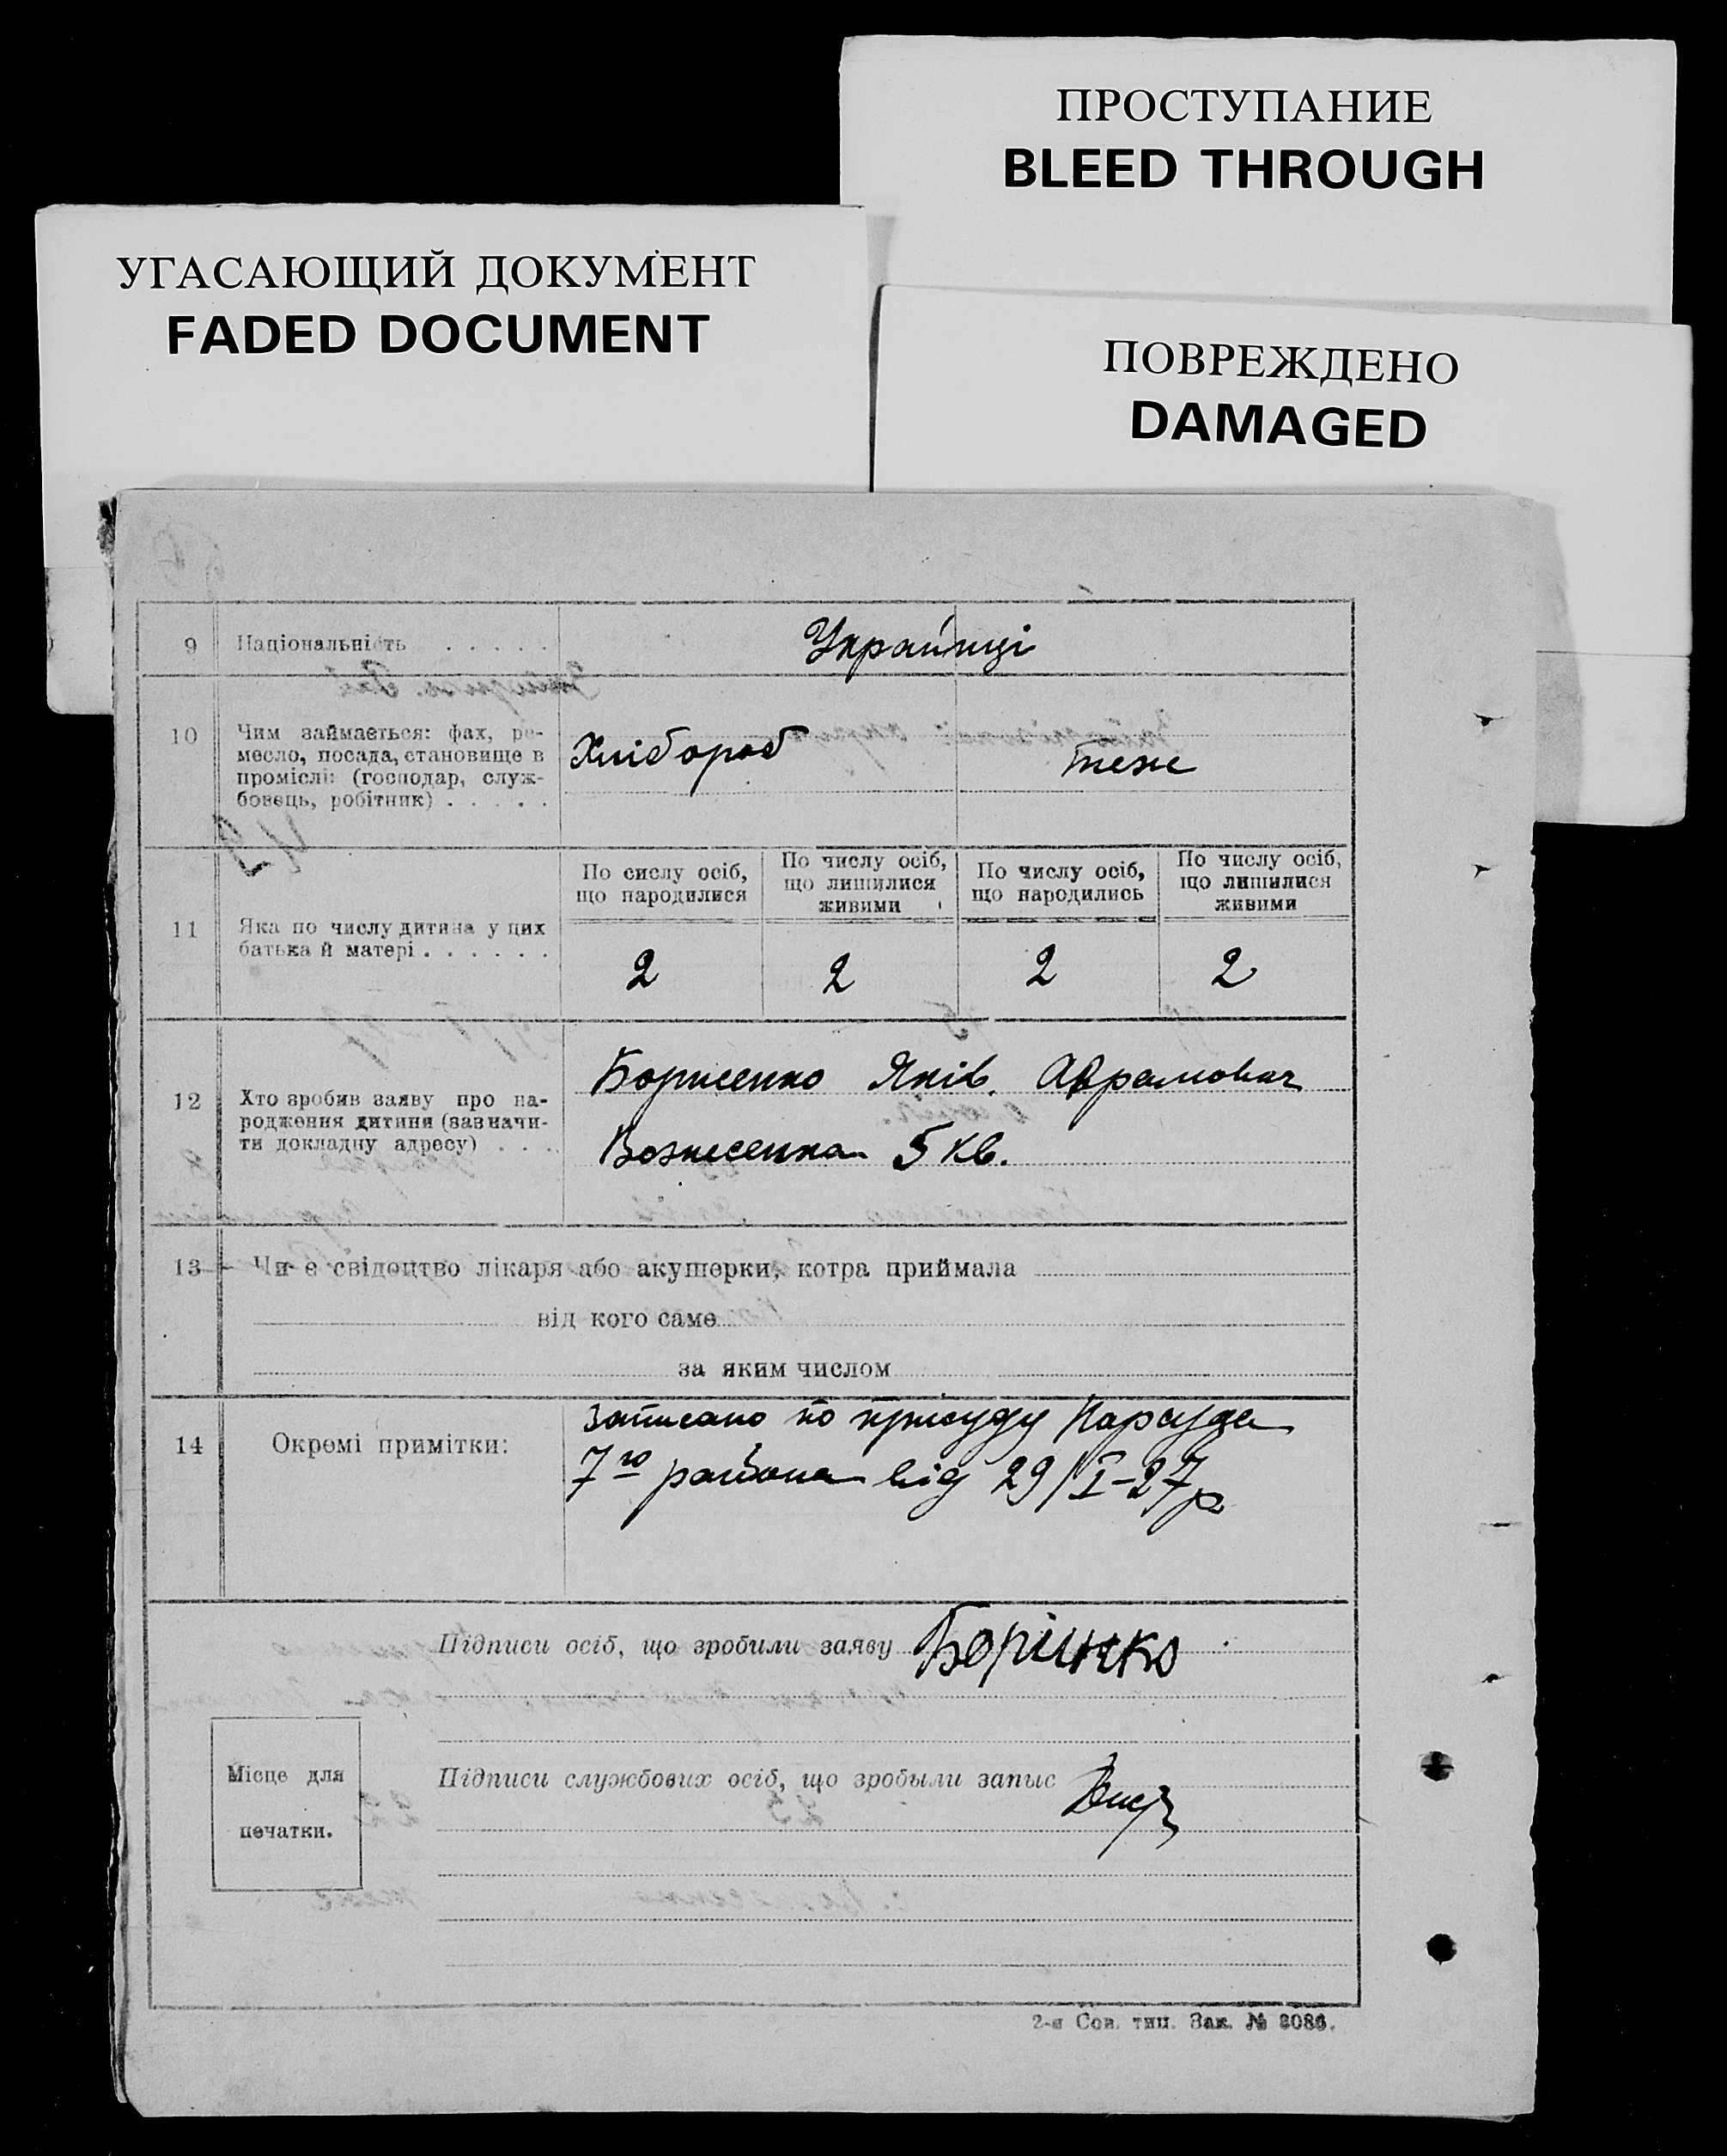 ПРОСТУПАНИЕ
BLEED THROUGH
УГАСАЮЩИЙ ДОКУМЕНТ
FADED DOCUMENT
ПОВРЕЖДЕНО
DAMAGED
9 Національність . . . . . Українці
10 Чим займається: фах, ре-
месло, посада, становище в
проміслі: (господар, служ-
бовець, робітник) . . . . .
Хлібороб теже
11 Яка по числу дитина у цих
батька й матері . . . . . .
По сислу осіб,
що народилися
По числу осіб,
що лишилися
живими
По числу осіб,
що народились
По числу осіб,
що лишилися
живими
2 2 2 2
12 Хто зробив заяву про на-
родження дитини (зазначи-
ти докладну адресу) . . .
Борисенко Яків. Аврамович
Вознесенка 5 кв.
13 Чи є свідоцтво лікаря або акушерки, котра приймала
від кого саме
за яким числом
14 Окремі примітки:
Записано по присуду Нарсуда
7го района від 29/I-27р
Підписи осіб, що зробили заяву
Місце для
печатки.
Підписи службових осіб, що зробыли запыс
2-я Сов. тип. Зак. № 8086.